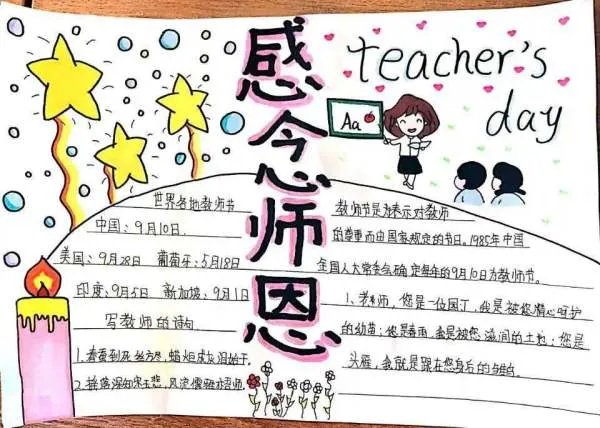 感念师恩
teacher's
day
Aa
世界各地教师节
中国：9月10日.
美国：9月28日 葡萄牙：5月18日
印度：9月5日 新加坡：9月1日
写教师的诗句
1.春蚕到死丝方尽，蜡炬成灰泪始干。
2.摇落深知宋玉悲，风流儒雅亦吾师。
教师节是为表示对教师
的尊重而由国家规定的节日。1985年中国
全国人大常委会确定每年的9月10日为教师节。
1、老师，您是一位园丁，我是被您精心呵护
的幼苗；您是春雨，我是被您滋润的土粒；您是
头雁，我就是跟在您身后的